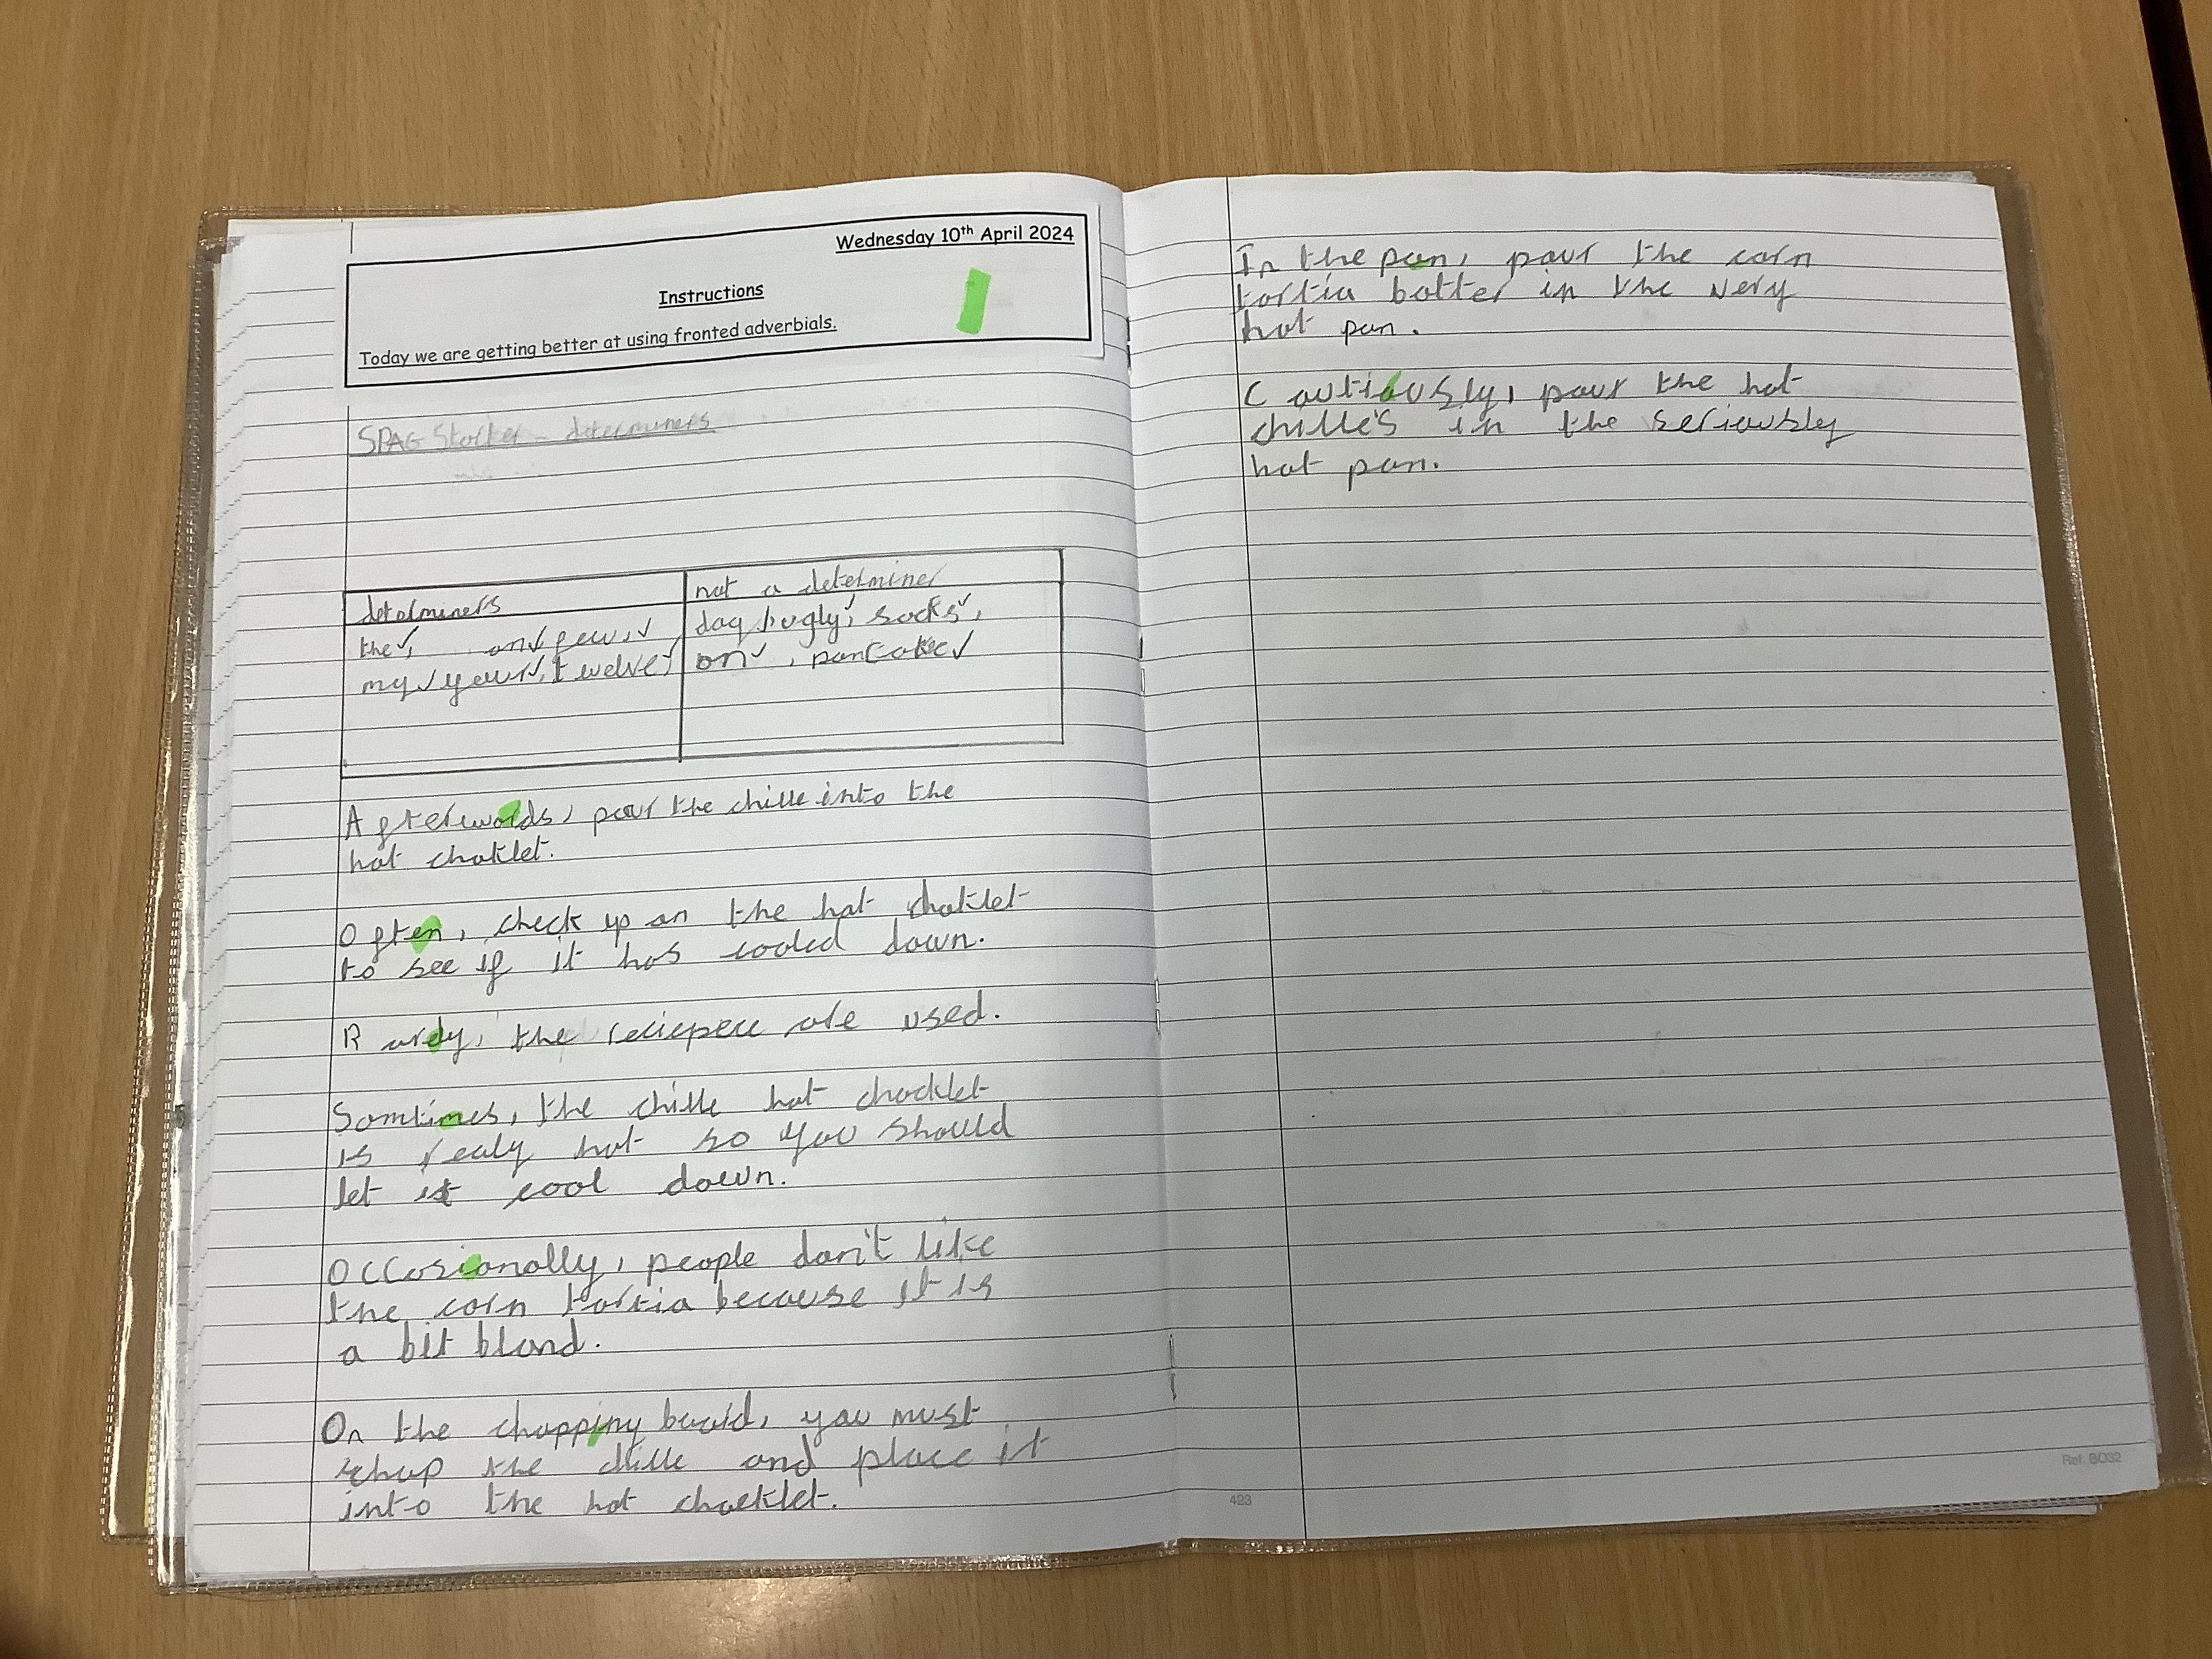 Wednesday 10th April 2024
Instructions
Today we are getting better at using fronted adverbials.
SPAG Starter - determiners
determiners
the, an, few,
my, your, twelve,
not a determiner
dog, ugly, socks,
on, pancake
Afterwards, pour the chille into the
hot choklet.
Often, check up on the hot choklet
to see if it has cooled down.
Rarely, the are used.
Somtimes, the chille hot chocklet
is realy hot so you should
let it cool down.
Occosionally, people don't like
the corn tortia because it is
a bit bland.
On the chopping board, you must
chop the chille and place it
into the hot chocklet.
423
In the pan, pour the corn
tortia batter in the very
hot pan.
Cautiously, pour the hot
chille's in the seriously
hot pan.
Ref: BO32